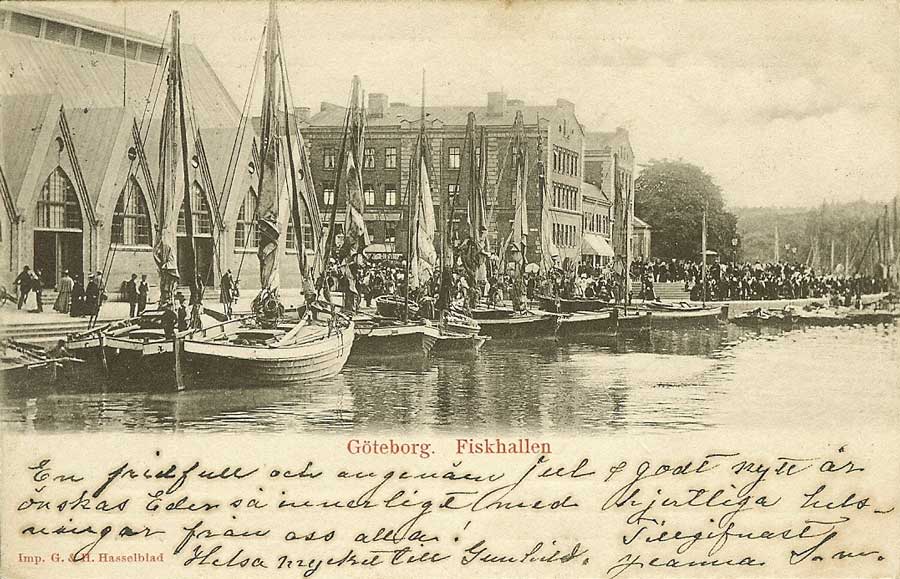 Göteborg. Fiskhallen
En fridfull och angenäm Jul & godt nytt år
önskas Eder så innerligt med hjertliga hels-
ningar från oss alla! Tillgifnast
Imp. G. & H. Hasselblad
Helsa mycket till Gunhild.